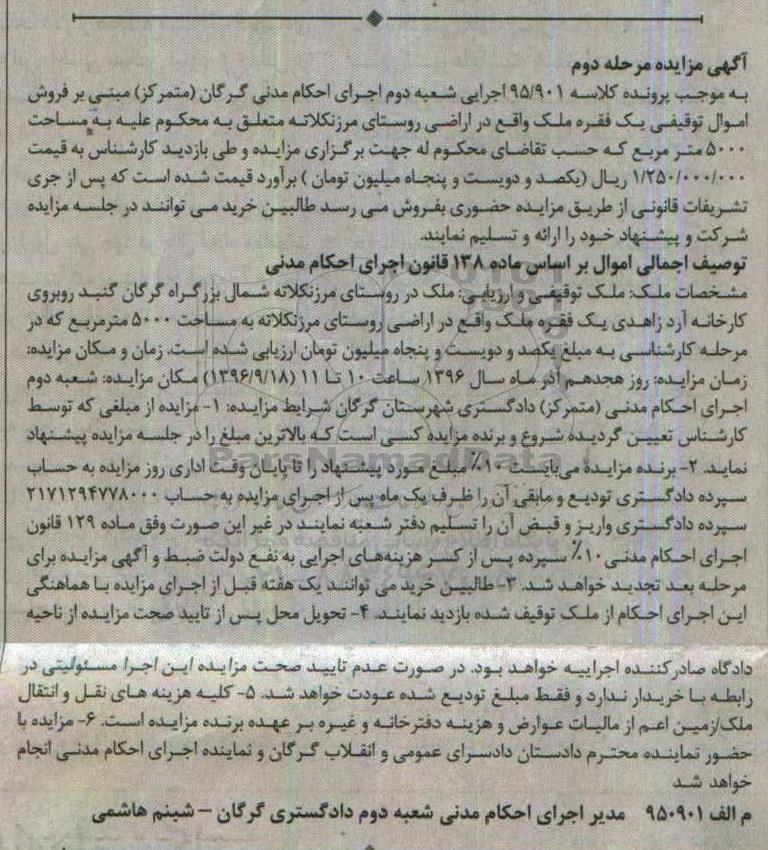 آگهی مزایده مرحله دوم
به موجب پرونده کلاسه ۹۵/۹۰۱ اجرایی شعبه دوم اجرای احکام مدنی گرگان (متمرکز) مبنی بر فروش
اموال توقیفی یک فقره ملک واقع در اراضی روستای مرزنکلاته متعلق به محکوم علیه به مساحت
۵۰۰۰ متر مربع که حسب تقاضای محکوم له جهت برگزاری مزایده و طی بازدید کارشناس به قیمت
۱/۲۵۰/۰۰۰/۰۰۰ ریال (یکصد و دویست و پنجاه میلیون تومان ) برآورد قیمت شده است که پس از جری
تشریفات قانونی از طریق مزایده حضوری بفروش می رسد طالبین خرید می توانند در جلسه مزایده
شرکت و پیشنهاد خود را ارائه و تسلیم نمایند.
توصیف اجمالی اموال بر اساس ماده ۱۳۸ قانون اجرای احکام مدنی
مشخصات ملک: ملک توقیفی و ارزیابی: ملک در روستای مرزنکلاته شمال بزرگراه گرگان گنبد روبروی
کارخانه آرد زاهدی یک فقره ملک واقع در اراضی روستای مرزنکلاته به مساحت ۵۰۰۰ مترمربع که در
مرحله کارشناسی به مبلغ یکصد و دویست و پنجاه میلیون تومان ارزیابی شده است. زمان و مکان مزایده:
زمان مزایده: روز هجدهم آذر ماه سال ۱۳۹۶ ساعت ۱۰ تا ۱۱ (۱۳۹۶/۹/۱۸) مکان مزایده: شعبه دوم
اجرای احکام مدنی (متمرکز) دادگستری شهرستان گرگان شرایط مزایده: ۱- مزایده از مبلغی که توسط
کارشناس تعیین گردیده شروع و برنده مزایده کسی است که بالاترین مبلغ را در جلسه مزایده پیشنهاد
نماید. ۲- برنده مزایده می‌بایست ۱۰٪ مبلغ مورد پیشنهاد را تا پایان وقت اداری روز مزایده به حساب
سپرده دادگستری تودیع و مابقی آن را ظرف یک ماه پس از اجرای مزایده به حساب ۲۱۷۱۲۹۴۷۷۸۰۰۰
سپرده دادگستری واریز و قبض آن را تسلیم دفتر شعبه نمایند در غیر این صورت وفق ماده ۱۲۹ قانون
اجرای احکام مدنی ۱۰٪ سپرده پس از کسر هزینه‌های اجرایی به نفع دولت ضبط و آگهی مزایده برای
مرحله بعد تجدید خواهد شد. ۳- طالبین خرید می توانند یک هفته قبل از اجرای مزایده با هماهنگی
این اجرای احکام از ملک توقیف شده بازدید نمایند. ۴- تحویل محل پس از تایید صحت مزایده از ناحیه
دادگاه صادرکننده اجراییه خواهد بود. در صورت عدم تایید صحت مزایده این اجرا مسئولیتی در
رابطه با خریدار ندارد و فقط مبلغ تودیع شده عودت خواهد شد. ۵- کلیه هزینه های نقل و انتقال
ملک/زمین اعم از مالیات عوارض و هزینه دفترخانه و غیره بر عهده برنده مزایده است. ۶- مزایده با
حضور نماینده محترم دادستان دادسرای عمومی و انقلاب گرگان و نماینده اجرای احکام مدنی انجام
خواهد شد
م الف ۹۵۰۹۰۱ مدیر اجرای احکام مدنی شعبه دوم دادگستری گرگان – شبنم هاشمی
ParsNamadData